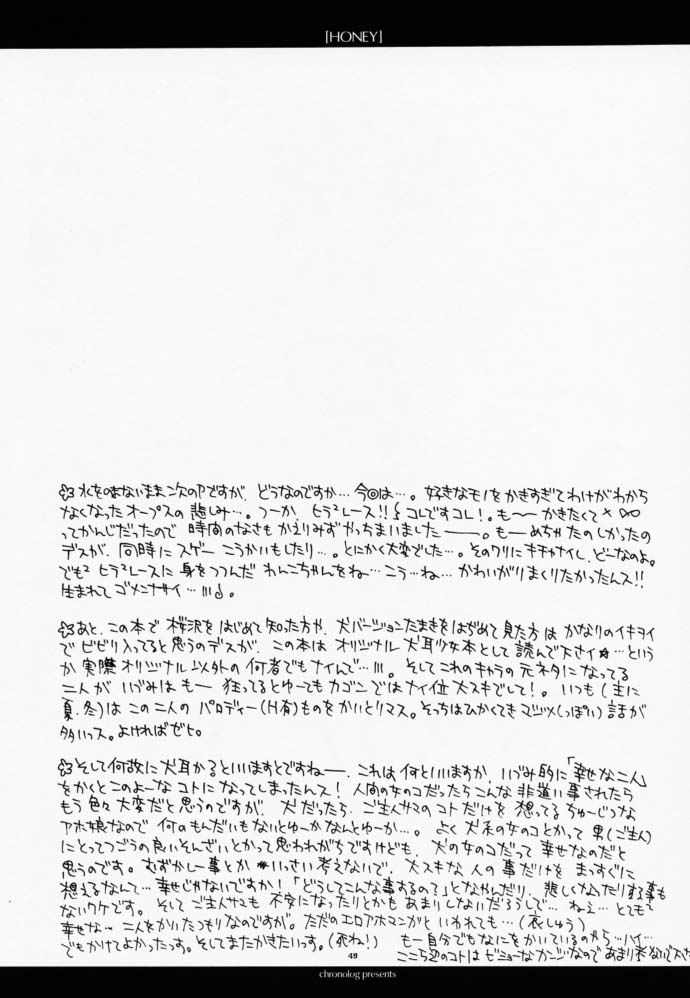 [HONEY]
水をのまないまま次のPですが、どうなのですか…今回は…。好きなモノをかきすぎてわけがわから
なくなったオープスの悲しみ…。つーか、ヒラ²レース!! コレですコレ!。も〜〜かきたくて
ってかんじだったので 時間のなさもかえりみずやっちまいました――。もーめちゃたのしかったの
デスが、同時にスゲー こうかいもしたり…。とにかく大変でした…。そのワリにキチャナイし、どーなのよ。
でも² ヒラ²レースに身をつつんだ わんこちゃんをね…こう…ね… かわいがりまくりたかったんス!!
生まれて ゴメンナサイ…!!!
あと、この本で 桜沢をはじめて知った方や、犬バージョンたまきをはぢめて見た方は かなりのイキヲイ
で ビビリ入ってると思うのデスが、この本は オリジナル 犬耳少女本として読んで下さイ☆…という
か 実際 オリジナル以外の何者でもナイんで…!!!。そしてこれのキャラの元ネタになってる
二人が いづみはもー 狂ってるとゆーても カゴンではナイ位 大スキでして!。いつも(主に
夏、冬)は この二人の パロディー(H有)ものを かいとりマス。そっちはひかくてきマジメ(っぽい)話が
多いっス。よければゼヒ。
そして何故に犬耳かるといいますとですねー、これは何といいますか、いづみ的に「幸せな二人」
をかくとこのよーな コトになってしまったんス! 人間の女のコだったらこんな非道い事されたら
もう色々大変だと思うのですが、犬だったら、ご主人サマの コトだけを 想ってる ちゅーじつな
アホ娘なので 何のもんだいもないとゆーかなんとゆーか…。よく犬系の女のコとかって 男(ご主人)
にとってつごうの良いそんざいとかって思われがちですけども、犬の女のコだって 幸せなのだと
思うのです。むずかしー事とか いっさい考えないで、大スキな人の事だけを まっすぐに
想えるなんて…幸せじゃないですか!「どうしてこんな事するの?」となやんだり、悲しくなったりする事も
ないワケです。そして ご主人サマも 不安になったりとかも あまりしないだろうしで… ねぇ… とても
幸せな… 二人をかいたつもりなのですが。ただのエロアホマンガと いわれても…(哀しゅう)
でもかけてよかったっす。そしてまたかきたいっす。(死ね!)
もー自分でもなにをかいているのやら…ハイ…
ここら辺のコトは ビミョーなカンジなので
49
chronolog presents